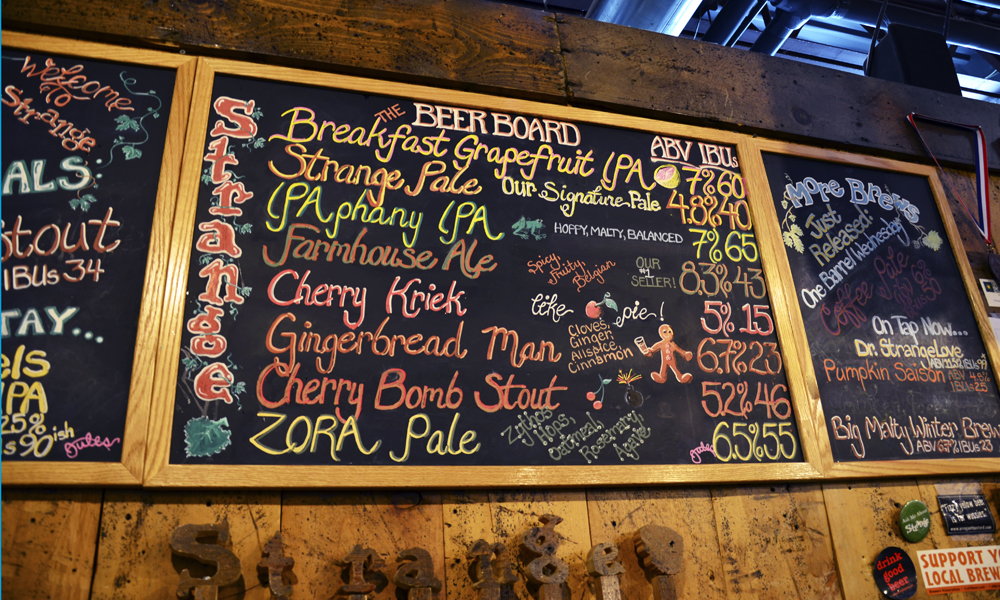 Welcome
to
Strange
ALS:
Stout
IBUs 34
TAY...
els
IPA
25%
s 90ish
Jules
Strange
THE BEER BOARD
ABV IBUs
Breakfast Grapefruit IPA 7% 60
Strange Pale Our Signature Pale 4.8% 40
IPAphany IPA HOPPY, MALTY, BALANCED 7% 65
Farmhouse Ale Spicy Fruity, Belgian OUR #1 SELLER! 8.3% 43
Cherry Kriek like pie! 5% 15
Gingerbread Man Cloves, Ginger, Allspice, Cinnamon 6.7% 23
Cherry Bomb Stout 5.2% 46
ZORA Pale Hops, Oatmeal, Rosemary, Agave 6.5% 55
More Brews
Just
Released:
One Barrel Wednesday
Coffee
On Tap Now...
Dr. StrangeLove
Pumpkin Saison
Big Malty Winter Brew
ABV 6.7% IBUs 23
Strange
Ask Me About
Strange
drink
good
beer
SUPPORT Y
LOCAL BREW